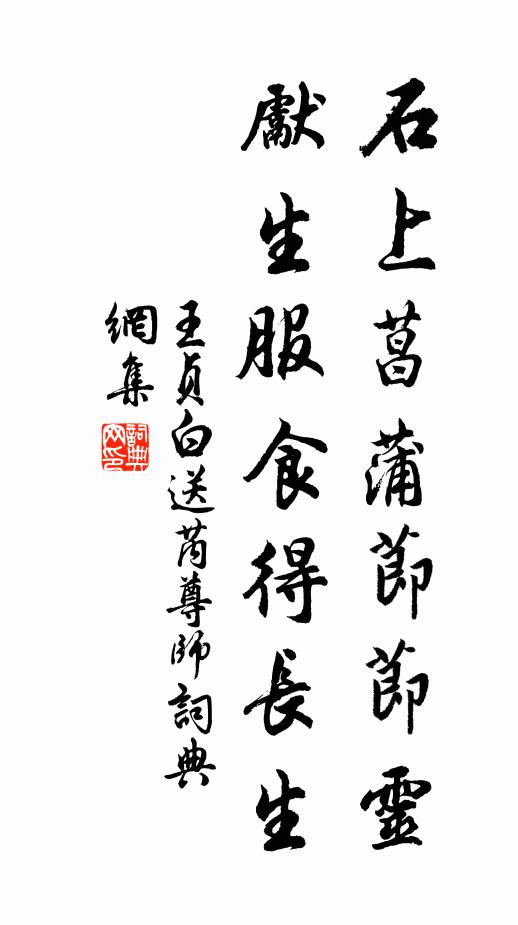 石上菖蒲莭莭靈
獻生服食得長生
王貞白送芮尊師詞典
網集
詞典
网印